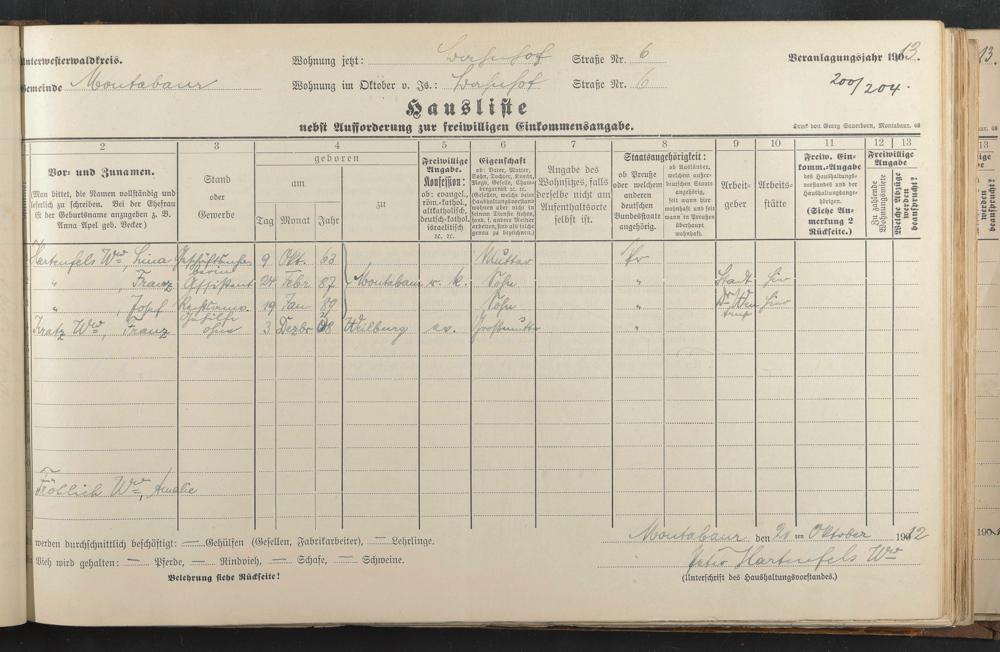 Unterwesterwaldkreis. Wohnung jetzt: Bahnhof Straße Nr. 6 Veranlagungsjahr 1913.
Gemeinde Montabaur Wohnung im Oktober v. Js.: Bahnhof Straße Nr. 6 200/204.
Hausliste
nebst Aufforderung zur freiwilligen Einkommensangabe.
Druck von Georg Sauerborn, Montabaur.
2 3 4 5 6 7 8 9 10 11 12 13
Vor- und Zunamen.
(Man bittet, die Namen vollständig und leserlich zu schreiben. Bei der Ehefrau ist der Geburtsname anzugeben z. B. Anna Apel geb. Becker)
Stand oder Gewerbe
geboren
am zu
Tag Monat Jahr
Freiwillige Angabe.
Konfession:
ob: evangel., röm.-kathol., altkatholisch, deutsch-kathol. israelitisch ec. ec.
Eigenschaft
ob: Vater, Mutter, Sohn, Tochter, Knecht, Magd, Geselle,
Angabe des Wohnsitzes, falls derselbe nicht am Aufenthaltsorte selbst ist.
Staatsangehörigkeit:
ob Preuße oder welchem anderen deutschen Bundesstaate angehörig.
ob Ausländer, welchem außerdeutschen Staate angehörig, seit wann hier wohnhaft und seit wann in Preußen überhaupt wohnhaft.
Arbeitgeber
Arbeitsstätte
Freiw. Einkomm.-Angabe
des Haushaltungsvorstandes und der Haushaltungsangehörigen.
(Siehe Anmerkung 2 Rückseite.)
Freiwillige Angabe
Zu zahlende Wohnungsmiete
Welche Abzüge werden beansprucht?
Hartenfels Wwe, Lina 9 Okt. 63 Mutter Pr
" , Franz Assistent 24 Febr 87 Montabaur r. k. Sohn " Stadt hier
" , Josef 19 Jan 89 Sohn " hier
Kratz Wwe, Franz ohne 3 Dezbr Weilburg ev. Großmutter "
Fröhlich Wwe, Amalie
werden durchschnittlich beschäftigt: — Gehülfen (Gesellen, Fabrikarbeiter), — Lehrlinge. Montabaur den 21 ten Oktober 1912
Vieh wird gehalten: — Pferde, — Rindvieh, — Schafe, — Schweine. Hartenfels Wwe
Belehrung siehe Rückseite! (Unterschrift des Haushaltungsvorstandes.)